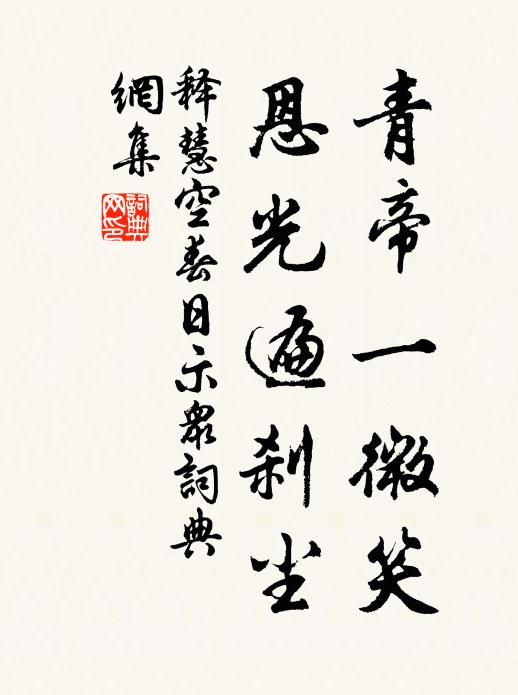 青帝一微笑
恩光遍刹尘
释慧空春日示衆詞典
網集
詞典
网印